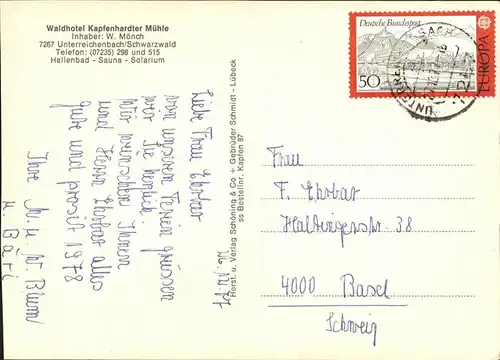 Waldhotel Kapfenhardter Mühle
Inhaber: W. Mönch
7267 Unterreichenbach/Schwarzwald
Telefon: (07235) 298 und 515
Hallenbad - Sauna - Solarium
Deutsche Bundespost
50
EUROPA
26.12.77
Liebe Frau Ehrbar
von unseren Ferien grüssen
wir Sie herzlich.
Wir wünschen Ihnen
und Herrn Ehrbar alles
Gute und prosit 1978
Ihre M. u. W. Blum
u. Bäri
Herst. u. Verlag Schöning & Co + Gebrüder Schmidt - Lübeck
ss Bestellnr. Kapfen 87
Frau
F. Ehrbar
Haltingerstr 38
4000 Basel
Schweiz